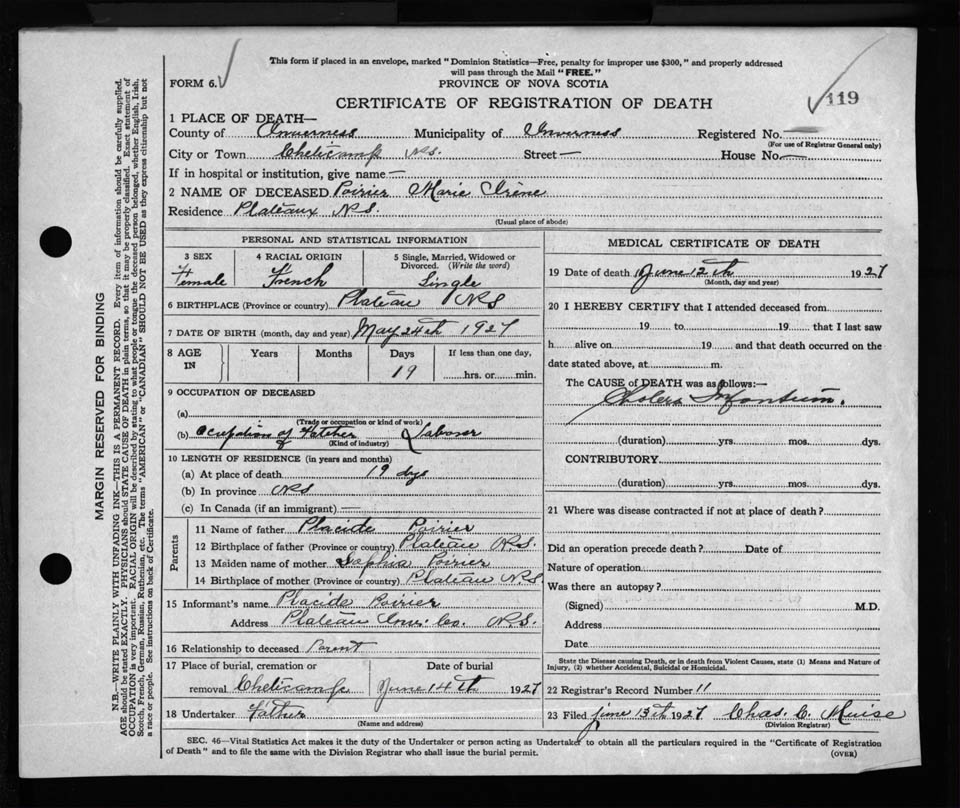 This form if placed in an envelope, marked "Dominion Statistics—Free, penalty for improper use $300," and properly addressed
will pass through the Mail "FREE."
FORM 6.
PROVINCE OF NOVA SCOTIA
CERTIFICATE OF REGISTRATION OF DEATH
119
1 PLACE OF DEATH—
County of Inverness Municipality of Inverness Registered No.
(For use of Registrar General only)
City or Town Cheticamp N.S. Street — House No. —
If in hospital or institution, give name —
2 NAME OF DECEASED Poirier Marie Irène
Residence Plateaux N.S.
(Usual place of abode)
PERSONAL AND STATISTICAL INFORMATION
3 SEX Female
4 RACIAL ORIGIN French
5 Single, Married, Widowed or Divorced. (Write the word) Single
6 BIRTHPLACE (Province or country) Plateau N.S
7 DATE OF BIRTH (month, day and year) May 24th 1927
8 AGE IN Years Months Days 19 If less than one day, hrs. or min.
9 OCCUPATION OF DECEASED
(a)
(Trade or occupation or kind of work)
(b) Ocupation of Father Laborer
(Kind of industry)
10 LENGTH OF RESIDENCE (in years and months)
(a) At place of death 19 dys
(b) In province N.S
(c) In Canada (if an immigrant) —
Parents
11 Name of father Placide Poirier
12 Birthplace of father (Province or country) Plateau N.S.
13 Maiden name of mother Sophia Poirier
14 Birthplace of mother (Province or country) Plateau N.S
15 Informant's name Placide Poirier
Address Plateau Inv. Co. N.S.
16 Relationship to deceased Parent
17 Place of burial, cremation or removal Cheticamp
Date of burial June 14th 1927
18 Undertaker Father
(Name and address)
MEDICAL CERTIFICATE OF DEATH
19 Date of death June 12th 1927
(Month, day and year)
20 I HEREBY CERTIFY that I attended deceased from
19 to 19 that I last saw
h alive on 19 and that death occurred on the
date stated above, at m.
The CAUSE of DEATH was as follows:—
Cholera Infantum.
(duration) yrs. mos. dys.
CONTRIBUTORY
(duration) yrs. mos. dys.
21 Where was disease contracted if not at place of death?
Did an operation precede death? Date of
Nature of operation
Was there an autopsy?
(Signed) M.D.
Address
Date
State the Disease causing Death, or in death from Violent Causes, state (1) Means and Nature of
Injury, (2) whether Accidental, Suicidal or Homicidal.
22 Registrar's Record Number 11
23 Filed June 13th 1927 Chas. C. Muise
(Division Registrar)
SEC. 46—Vital Statistics Act makes it the duty of the Undertaker or person acting as Undertaker to obtain all the particulars required in the "Certificate of Registration
of Death" and to file the same with the Division Registrar who shall issue the burial permit.
(OVER)
MARGIN RESERVED FOR BINDING
N.B.—WRITE PLAINLY WITH UNFADING INK—THIS IS A PERMANENT RECORD. Every item of information should be carefully supplied.
AGE should be stated EXACTLY. PHYSICIANS should STATE CAUSE OF DEATH in plain terms, so that it may be properly classified. Exact statement of
OCCUPATION is very important. RACIAL ORIGIN will be described by stating to what people or tongue the deceased person belonged, whether English, Irish,
Scotch, French, German, Russian, Ruthenian, etc. The terms "AMERICAN" or "CANADIAN" SHOULD NOT BE USED as they express citizenship but not
a race or people. See instructions on back of Certificate.